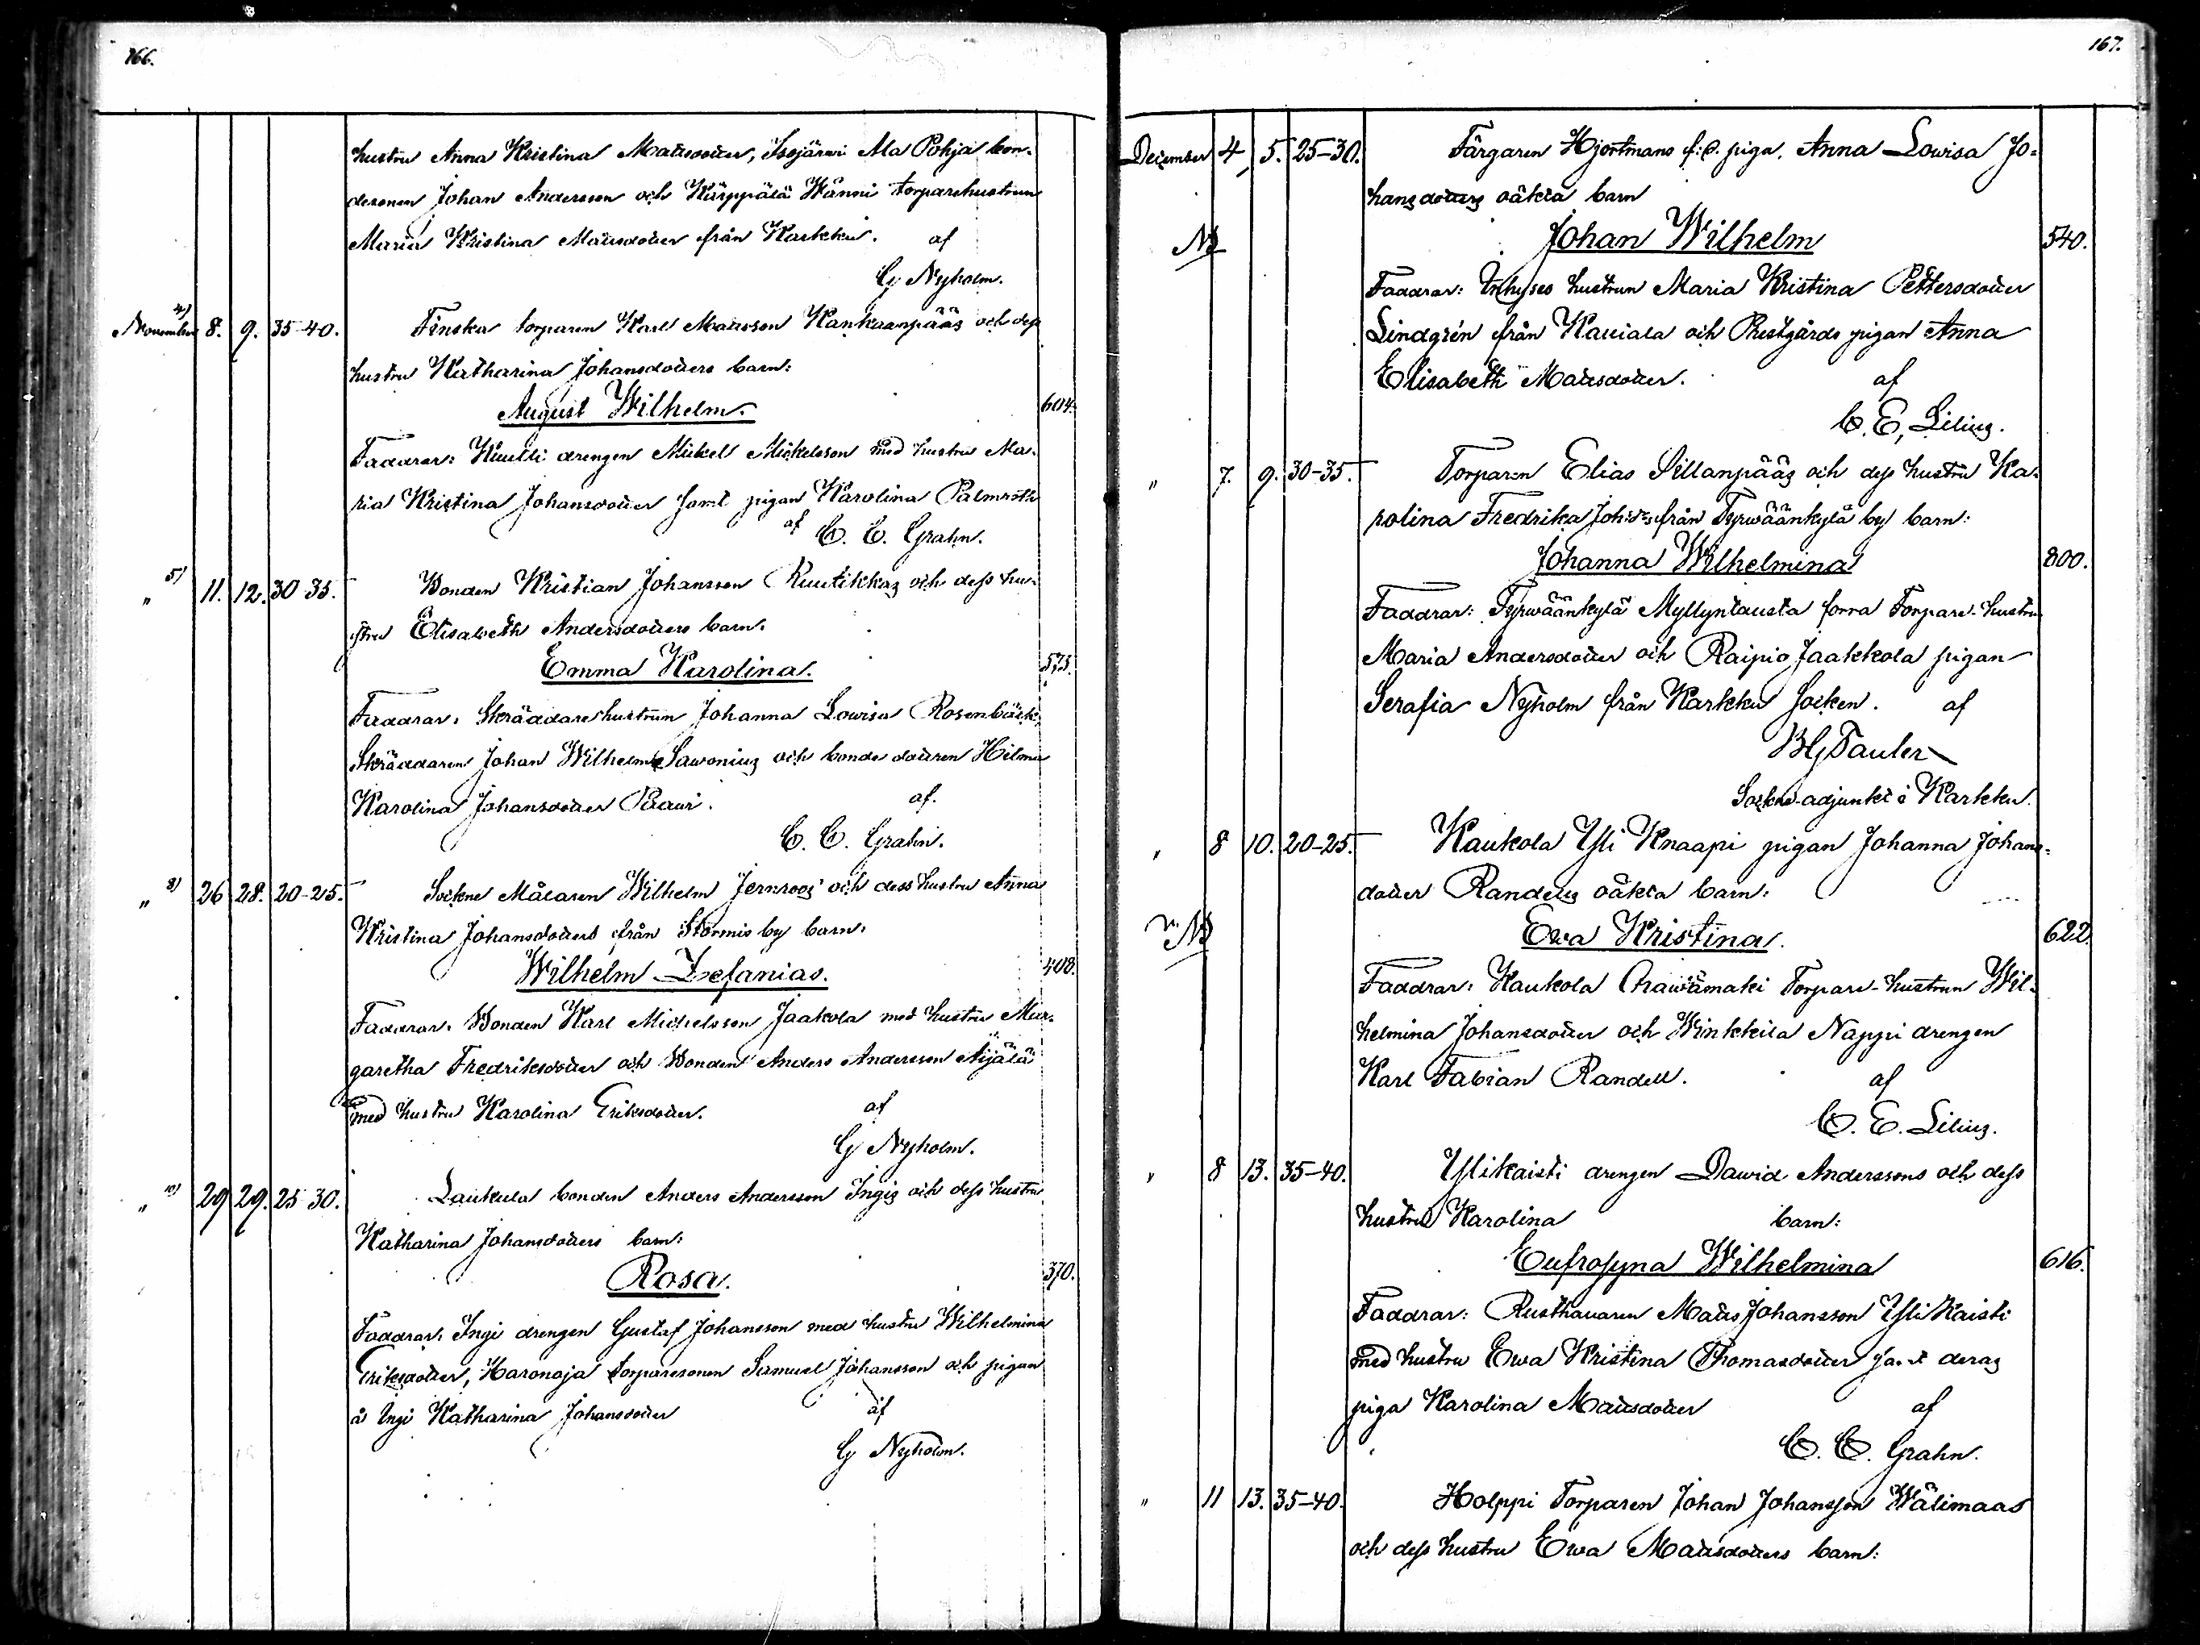 166.
hustru Anna Kristina Mattsdotter, Isojärwi Ala Pohja bon-
desonen Johan Andersson och Kärppälä Wänni torparehustrun
Maria Kristina Mattsdotter från Karkku. af
G Nyholm.
November 4) 8. 9. 35-40. Finska torparen Karl Mattsson Kankaanpääs och dess
hustru Katharina Johansdotters barn:
August Wilhelm. 604.
Faddrar: drengen Mickel Mickelsson med hustru Ma-
ria Kristina Johansdotter samt pigan Karolina Palmroth
af C. E. Grahn.
„ 5) 11. 12. 30-35. Bonden Kristian Johansson Ruutikkas och dess hu-
stru Elisabeth Andersdotters barn.
Emma Karolina. 573.
Faddrar: Skräddarehustrun Johanna Lowisa Rosenbäck,
Skräddaren Johan Wilhelm Sawonius och bonde dottren Hilma
Karolina Johansdotter Paawi. af.
C. E. Grahn.
„ 8) 26 28. 20-25. Sockne Målaren Wilhelm Jernroos och dess hustru Anna
Kristina Johansdotters från Stormis by barn:
Wilhelm Zefanias. 408.
Faddrar: Bonden Karl Michelsson Jaakola med hustru Mar-
garetha Fredriksdotter och Bonden Anders Andersson Äijälä
med hustru Karolina Eriksdotter. af
G Nyholm.
„ 10) 29 29. 25-30. Laukula bonden Anders Andersson Ingis och dess hustru
Katharina Johansdotters barn:
Rosa. 370.
Faddrar: Ingi drengen Gustaf Johansson med hustru Wilhelmina
Eriksdotter, Haronoja torparesonen Samuel Johansson och pigan
å Ingi Katharina Johansdotter af
G Nyholm.
167.
December 4, 5. 25-30. Färgaren Hjortmans f: d. piga, Anna Lowisa Jo-
hansdotters oäkta barn
NB Johan Wilhelm 540.
Faddrar: Inhyses hustrun Maria Kristina Pettersdotter
Lindgrén från Kauiala och Prestgårds pigan Anna
Elisabeth Mattsdotter. af
C. E. Lilius.
„ 7. 9. 30-35. Torparen Elias Sillanpääs och dess hustru Ka-
rolina Fredrika Joh:drs från Tyrwäänkylä by barn:
Johanna Wilhelmina 800.
Faddrar: Tyrwäänkylä Myllyntausta forra Torpare-hustru
Maria Andersdotter och Raipio Jaakkola pigan
Serafia Nyholm från Karkku socken. af
Tauler
Sockne-adjunkt i Karkku.
„ 8 10. 20-25. Kaukola Yli Knaapi pigan Johanna Johans-
dotter Randells oäkta barn:
NB Ewa Kristina. 622.
Faddrar: Kaukola Torpare-hustrun Wil-
helmina Johansdotter och Winkkila Nappi drengen
Karl Fabian Randell. af
C. E. Lilius.
„ 8 13. 35-40. Ylikaisti drengen Dawid Anderssons och dess
hustru Karolina barn:
Eufrosyna Wilhelmina 616.
Faddrar: Rusthållaren Matts Johansson Yli Kaisti
med hustru Ewa Kristina Thomasdotter samt deras
piga Karolina Mattsdotter af
C. E. Grahn.
„ 11 13. 35-40. Holppi Torparen Johan Johansson Wälimaas
och dess hustru Ewa Mattsdotters barn: